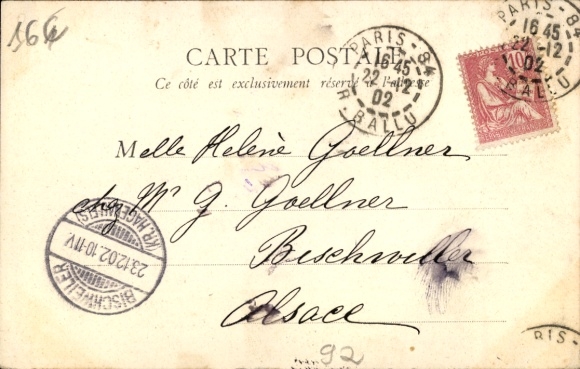 164
CARTE POSTALE
Ce côté est exclusivement réservé à l'adresse
PARIS - 84
16 45
22 - 12
02
R. BALLU
PARIS - 84
16 45
22 - 12
02
BALLU
10
Melle Helène Goellner
chez Mr G. Goellner
Bischwiller
Alsace
BISCHWEILER
23.12.02.10-11V.
(KR. HAGENAU ELS)
92
RIS -